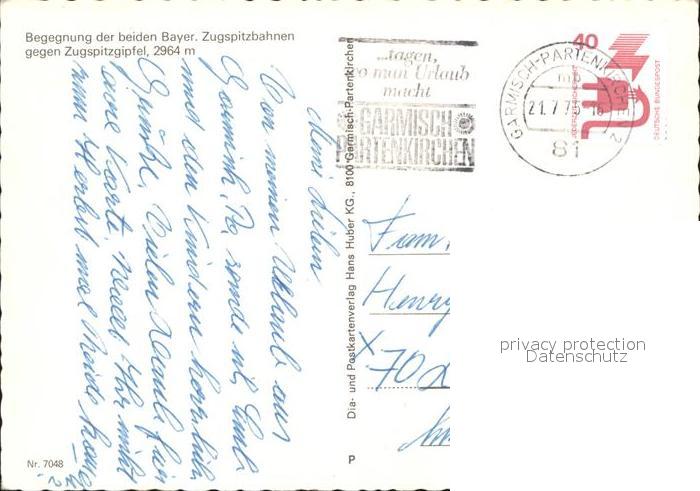 Begegnung der beiden Bayer. Zugspitzbahnen
gegen Zugspitzgipfel, 2964 m
...tagen,
wo man Urlaub
macht
GARMISCH
PARTENKIRCHEN
GARMISCH-PARTENKIRCHEN 2
mb
21.7.7
81
40
DEUTSCHE BUNDESPOST
Meine Lieben
Von meinem Urlaub aus
Garmisch Pa. sende ich Euch
und den Kindern herzliche
Grüße. Vielen Dank für
eure Karte.
Dia- und Postkartenverlag Hans Huber KG., 8100 Garmisch-Partenkirchen
Fam.
Henry
70
privacy protection
Datenschutz
Nr. 7048
P